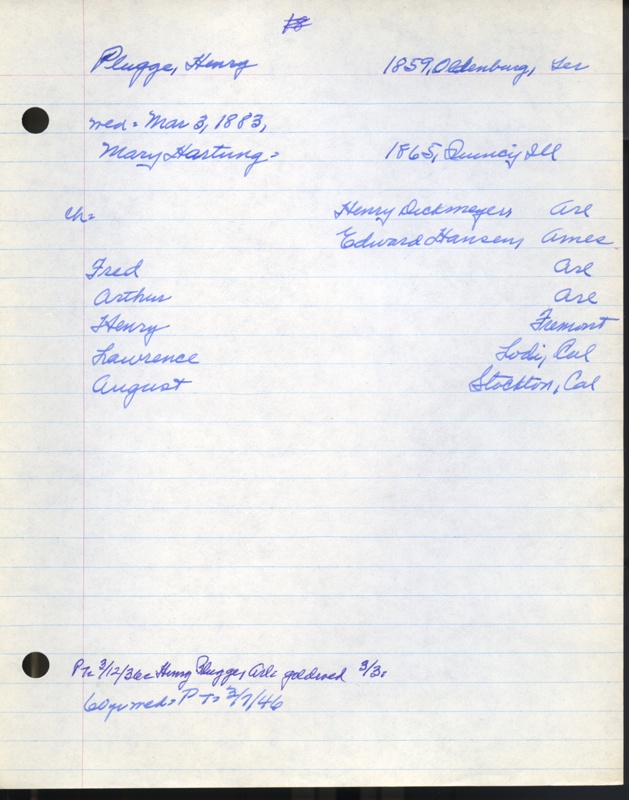 18
Plugge, Henry 1859, Oldenburg, Ger
wed = Mar 3, 1883,
Mary Hartung = 1865, Quincy Ill
Ch =
Henry Dickmeyers Arl
Edward Hansens Ames
Fred Arl
Arthur Arl
Henry Fremont
Lawrence Lodi, Cal
August Stockton, Cal
P T = 3/12/36 = Henry Plugges, Arl = goldwed 3/3 =
60 yr wed = P T = 3/7/46